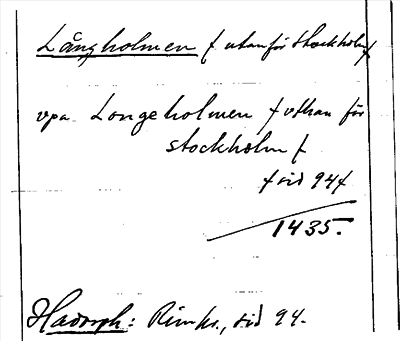 Långholmen / utanför Stockholm/
vpa Longeholmen / vthan för
stockholm /
/ sid 94/
1435.
Hadorph: Rimkr., sid 94.